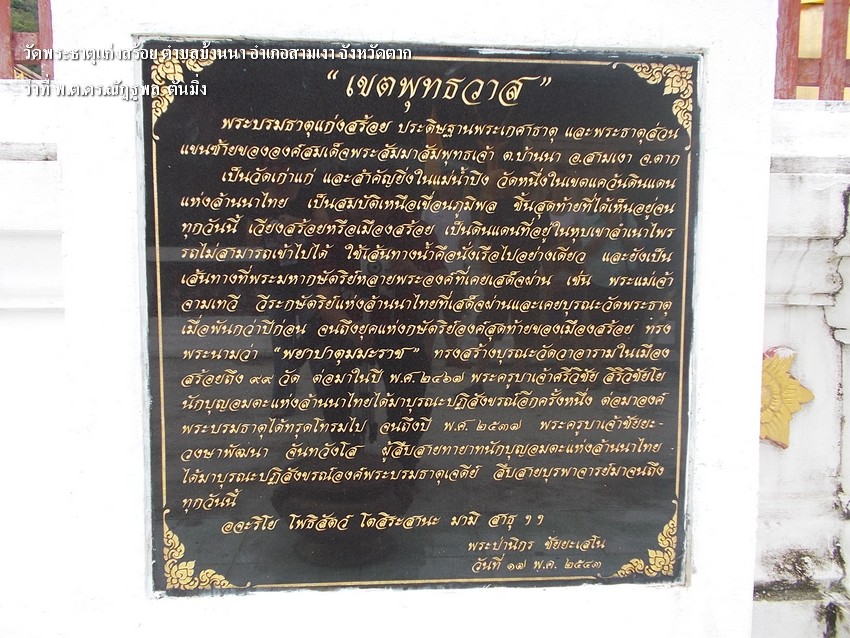 วัดพระธาตุแก่งสร้อย ตำบลบ้านนา อำเภอสามเงา จังหวัดตาก
ว่าที่ พ.ต.ดร.ณัฏฐพล ตันมิ่ง
“ เขตพุทธวาส ”
พระบรมธาตุแก่งสร้อย ประดิษฐานพระเกศาธาตุ และพระธาตุส่วน
แขนซ้ายขององค์สมเด็จพระสัมมาสัมพุทธเจ้า ต.บ้านนา อ.สามเงา จ.ตาก
เป็นวัดเก่าแก่ และสำคัญยิ่งในแม่น้ำปิง วัดหนึ่งในเขตแคว้นดินแดน
แห่งล้านนาไทย เป็นสมบัติเหนือเขื่อนภูมิพล ชิ้นสุดท้ายที่ได้เห็นอยู่จน
ทุกวันนี้ เวียงสร้อยหรือเมืองสร้อย เป็นดินแดนที่อยู่ในหุบเขาลำเนาไพร
รถไม่สามารถเข้าไปได้ ใช้เส้นทางน้ำคือนั่งเรือไปอย่างเดียว และยังเป็น
เส้นทางที่พระมหากษัตริย์หลายพระองค์ที่เคยเสด็จผ่าน เช่น พระแม่เจ้า
จามเทวี วีระกษัตริย์แห่งล้านนาไทยที่เสด็จผ่านและเคยบูรณะวัดพระธาตุ
เมื่อพันกว่าปีก่อน จนถึงยุคแห่งกษัตริย์องค์สุดท้ายของเมืองสร้อย ทรง
พระนามว่า “พยาปาตุมมะราช” ทรงสร้างบูรณะวัดวาอารามในเมือง
สร้อยถึง ๙๙ วัด ต่อมาในปี พ.ศ.๒๔๖๗ พระครูบาเจ้าศรีวิชัย สิริวิชัยโย
นักบุญอมตะแห่งล้านนาไทยได้มาบูรณะปฏิสังขรณ์อีกครั้งหนึ่ง ต่อมาองค์
พระบรมธาตุได้ทรุดโทรมไป จนถึงปี พ.ศ. ๒๕๓๗ พระครูบาเจ้าชัยยะ-
วงษาพัฒนา จันทวังโส ผู้สืบสายทายาทนักบุญอมตะแห่งล้านนาไทย
ได้มาบูรณะปฏิสังขรณ์องค์พระบรมธาตุเจดีย์ สืบสายบุรพาจารย์มาจนถึง
ทุกวันนี้
อจะริโย โพธิสัตว์ โตสิระสานะ มามิ สาธุ ๆ ๆ
พระปานิกร ชัยยะเสโน
วันที่ ๑๗ พ.ค. ๒๕๔๓